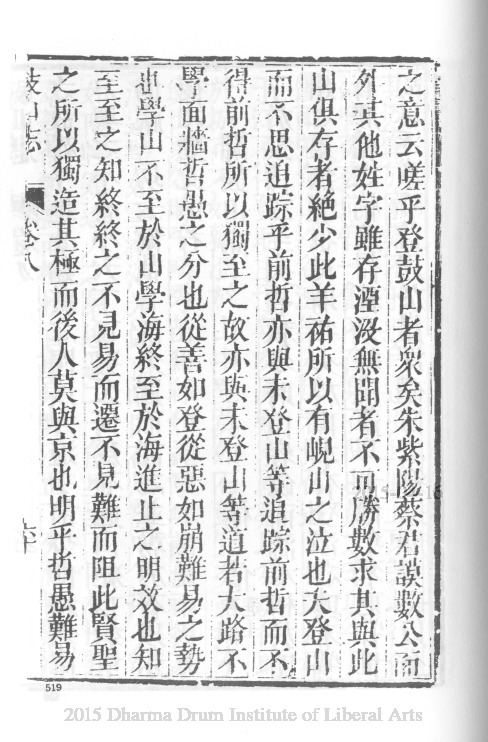 之意云嗟乎登鼓山者衆矣朱紫陽蔡君謨數公而
外其他姓字雖存湮沒無聞者不可勝數求其與此
山俱存者絶少此羊祐所以有峴山之泣也夫登山
而不思追踪乎前哲亦與未登山等追踪前哲而不
得前哲所以獨至之故亦與未登山等道若大路不
學面牆哲愚之分也從善如登從惡如崩難易之勢
也學山不至於山學海終至於海進止之明效也知
至至之知終終之不見易而遷不見難而阻此賢聖
之所以獨造其極而後人莫與京也明乎哲愚難易
鼓山志 卷八 六十
519
2015 Dharma Drum Institute of Liberal Arts